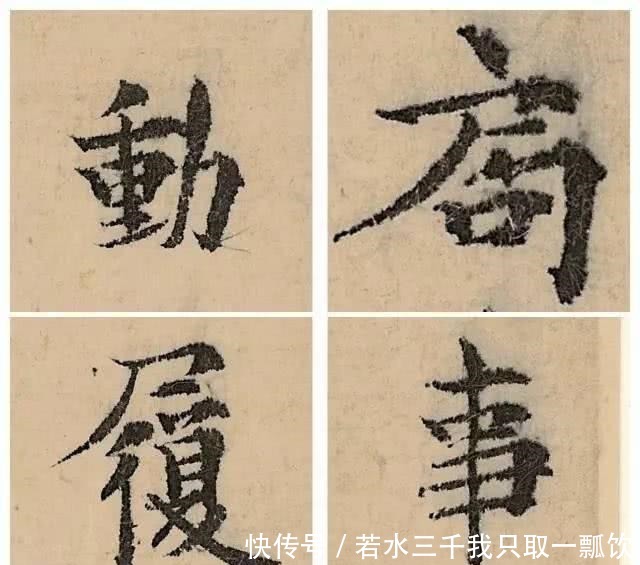 動
履 事
快传号 / 若水三千我只取一瓢饮